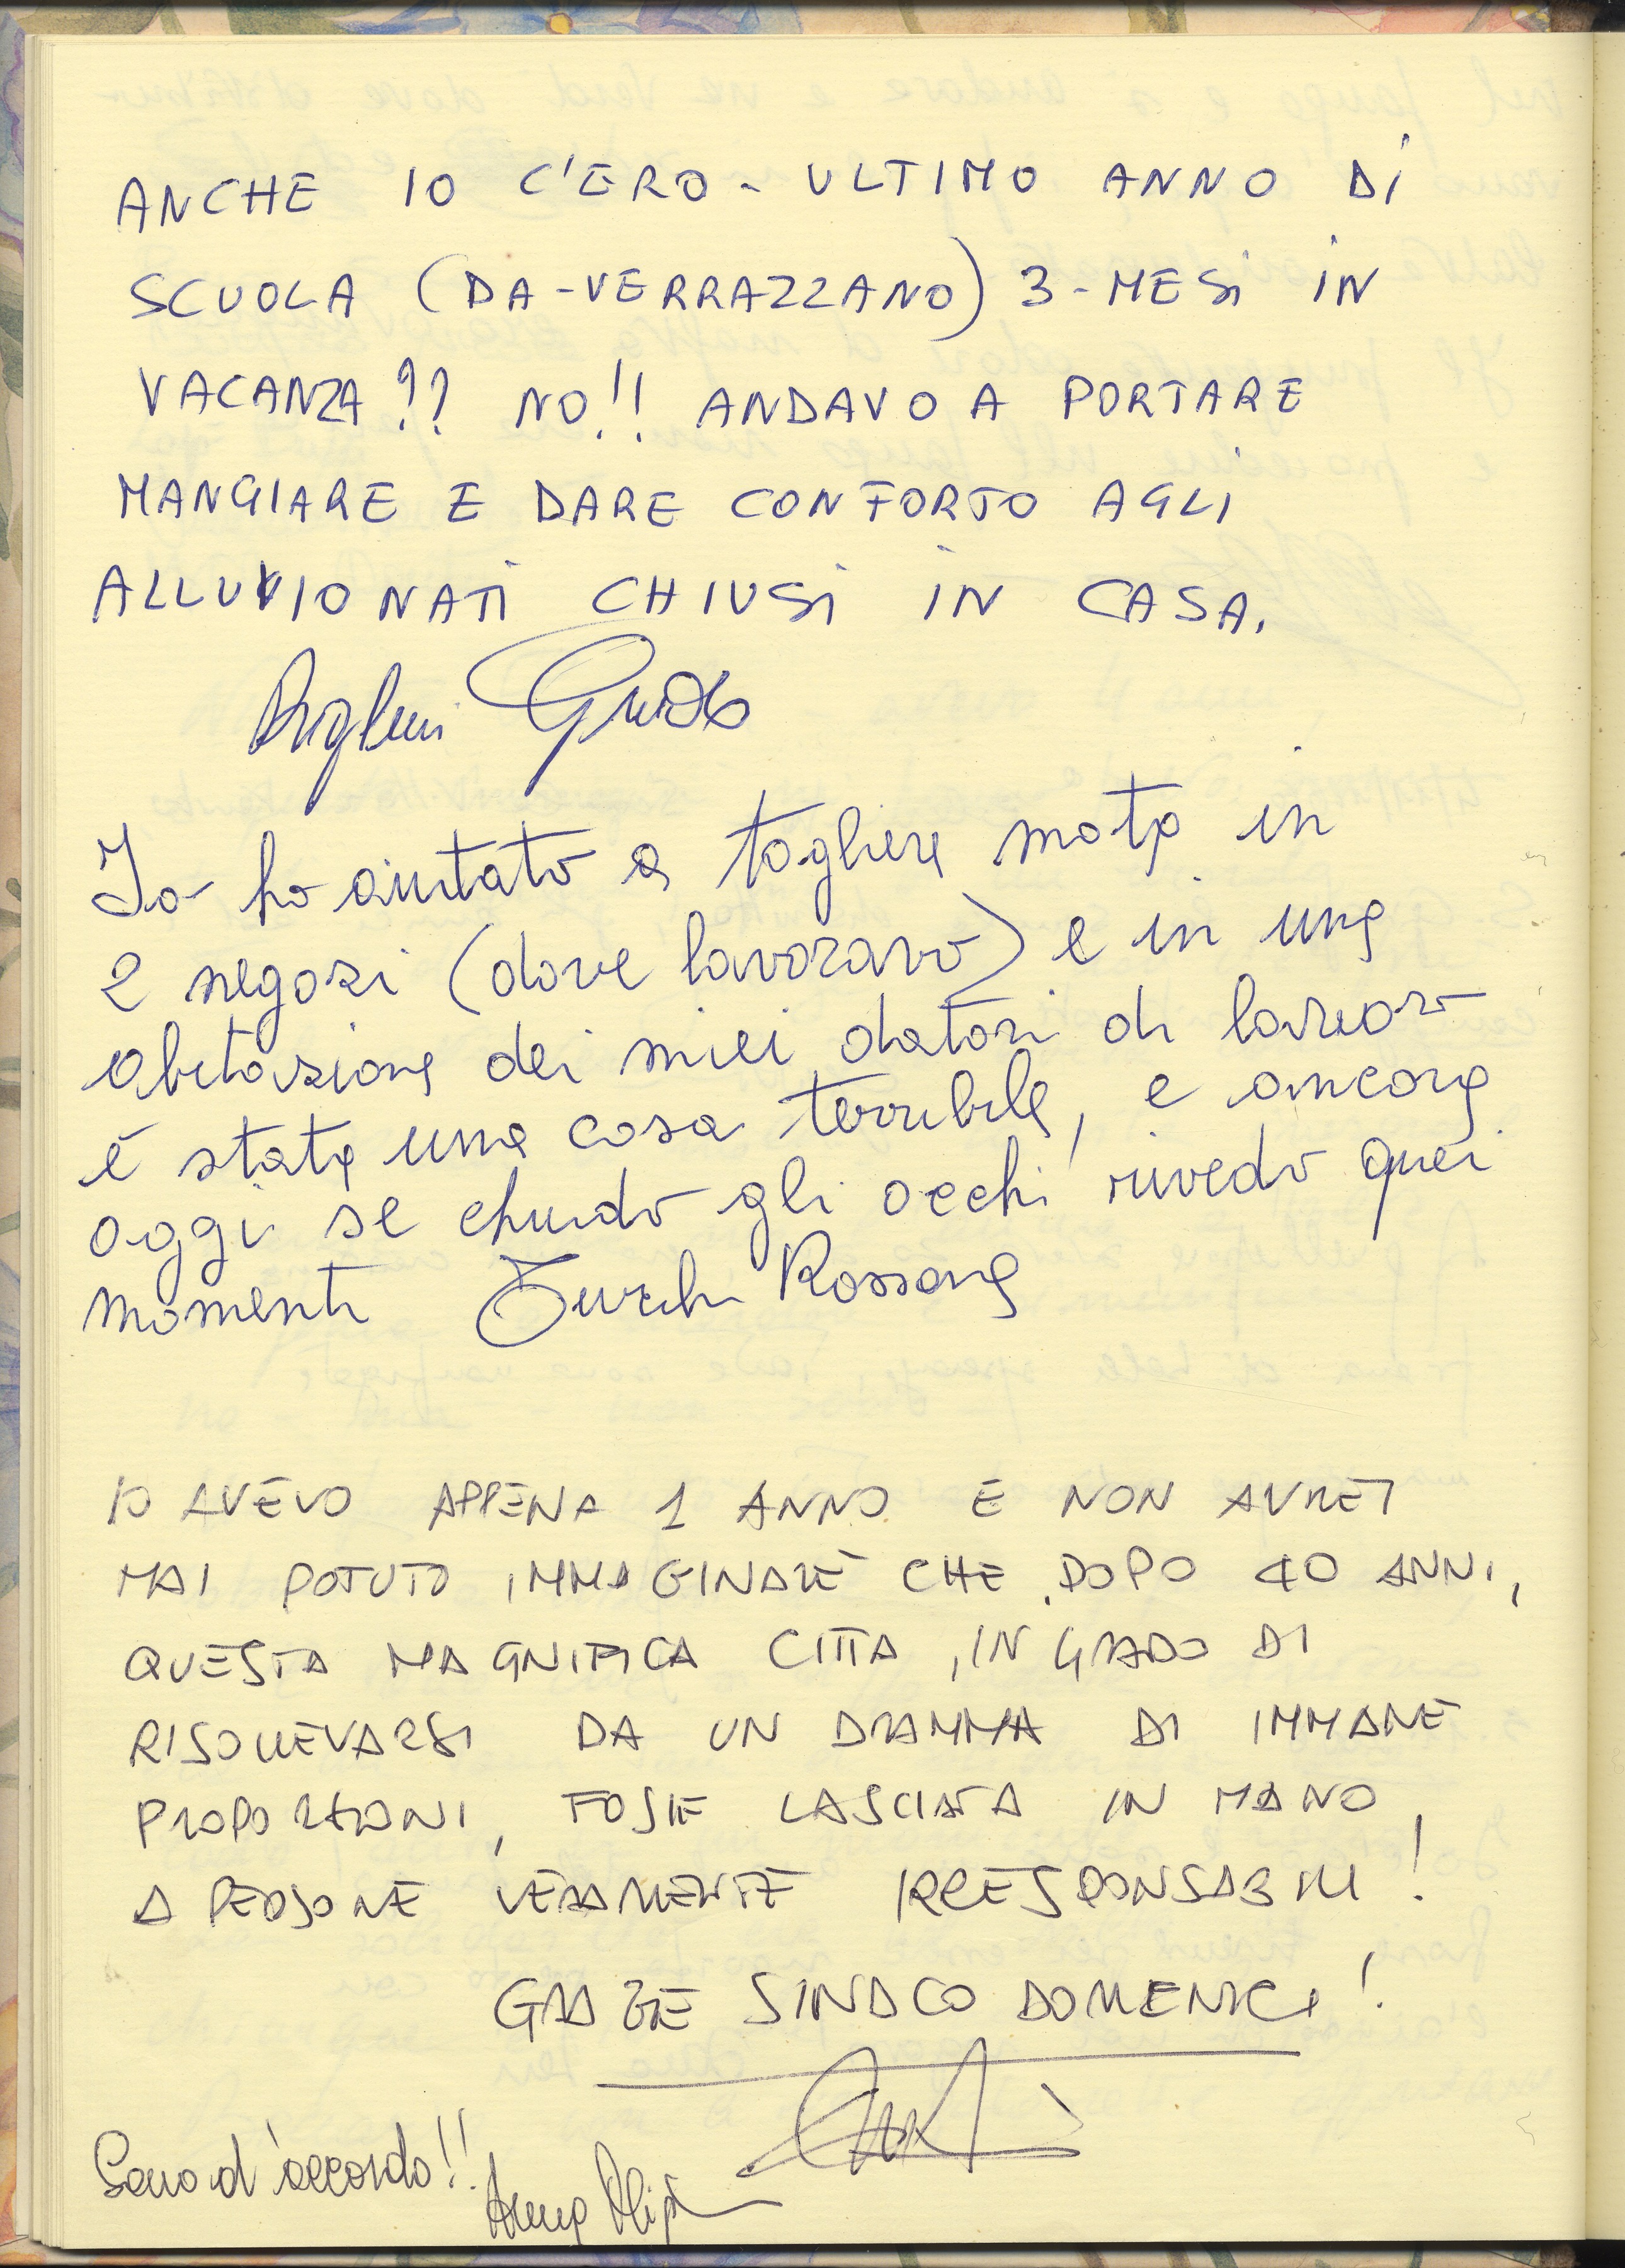 ANCHE IO C'ERO - ULTIMO ANNO DI
SCUOLA (DA-VERRAZZANO) 3-MESI IN
VACANZA?? NO!! ANDAVO A PORTARE
MANGIARE E DARE CONFORTO AGLI
ALLUVIONATI CHIUSI IN CASA.
Guido
Io ho aiutato a togliere mota in
2 negozi (dove lavoravo) e in una
abitazione dei miei datori di lavoro
è stata una cosa terribile, e ancora
oggi se chiudo gli occhi rivedo quei
momenti Rossana
IO AVEVO APPENA 1 ANNO E NON AVREI
MAI POTUTO IMMAGINARE CHE, DOPO 40 ANNI,
QUESTA MAGNIFICA CITTA, IN GRADO DI
RISOLLEVARSI DA UN DRAMMA DI IMMANE
PROPORZIONI, FOSSE LASCIATA IN MANO
A PERSONE VERAMENTE IRRESPONSABILI!
GRAZIE SINDACO DOMENICI!
Sono d'accordo!!